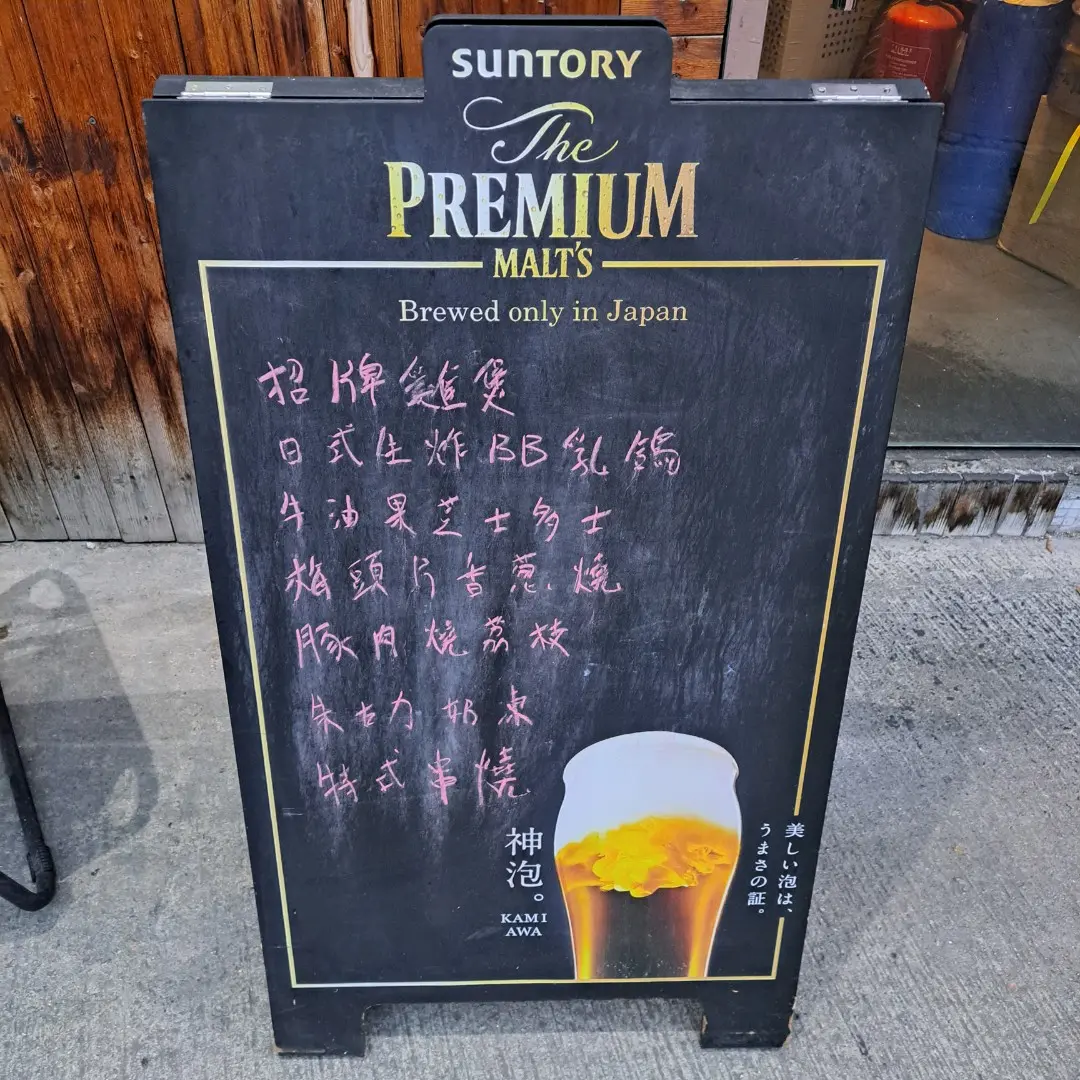 SUNTORY
The
PREMIUM
MALT'S
Brewed only in Japan
招牌雞煲
日式生炸BB乳鴿
牛油果芝士多士
梅頭片香蔥燒
豚肉燒荔枝
朱古力奶凍
特式串燒
神泡。
KAMI
AWA
美しい泡は、
うまさの証。